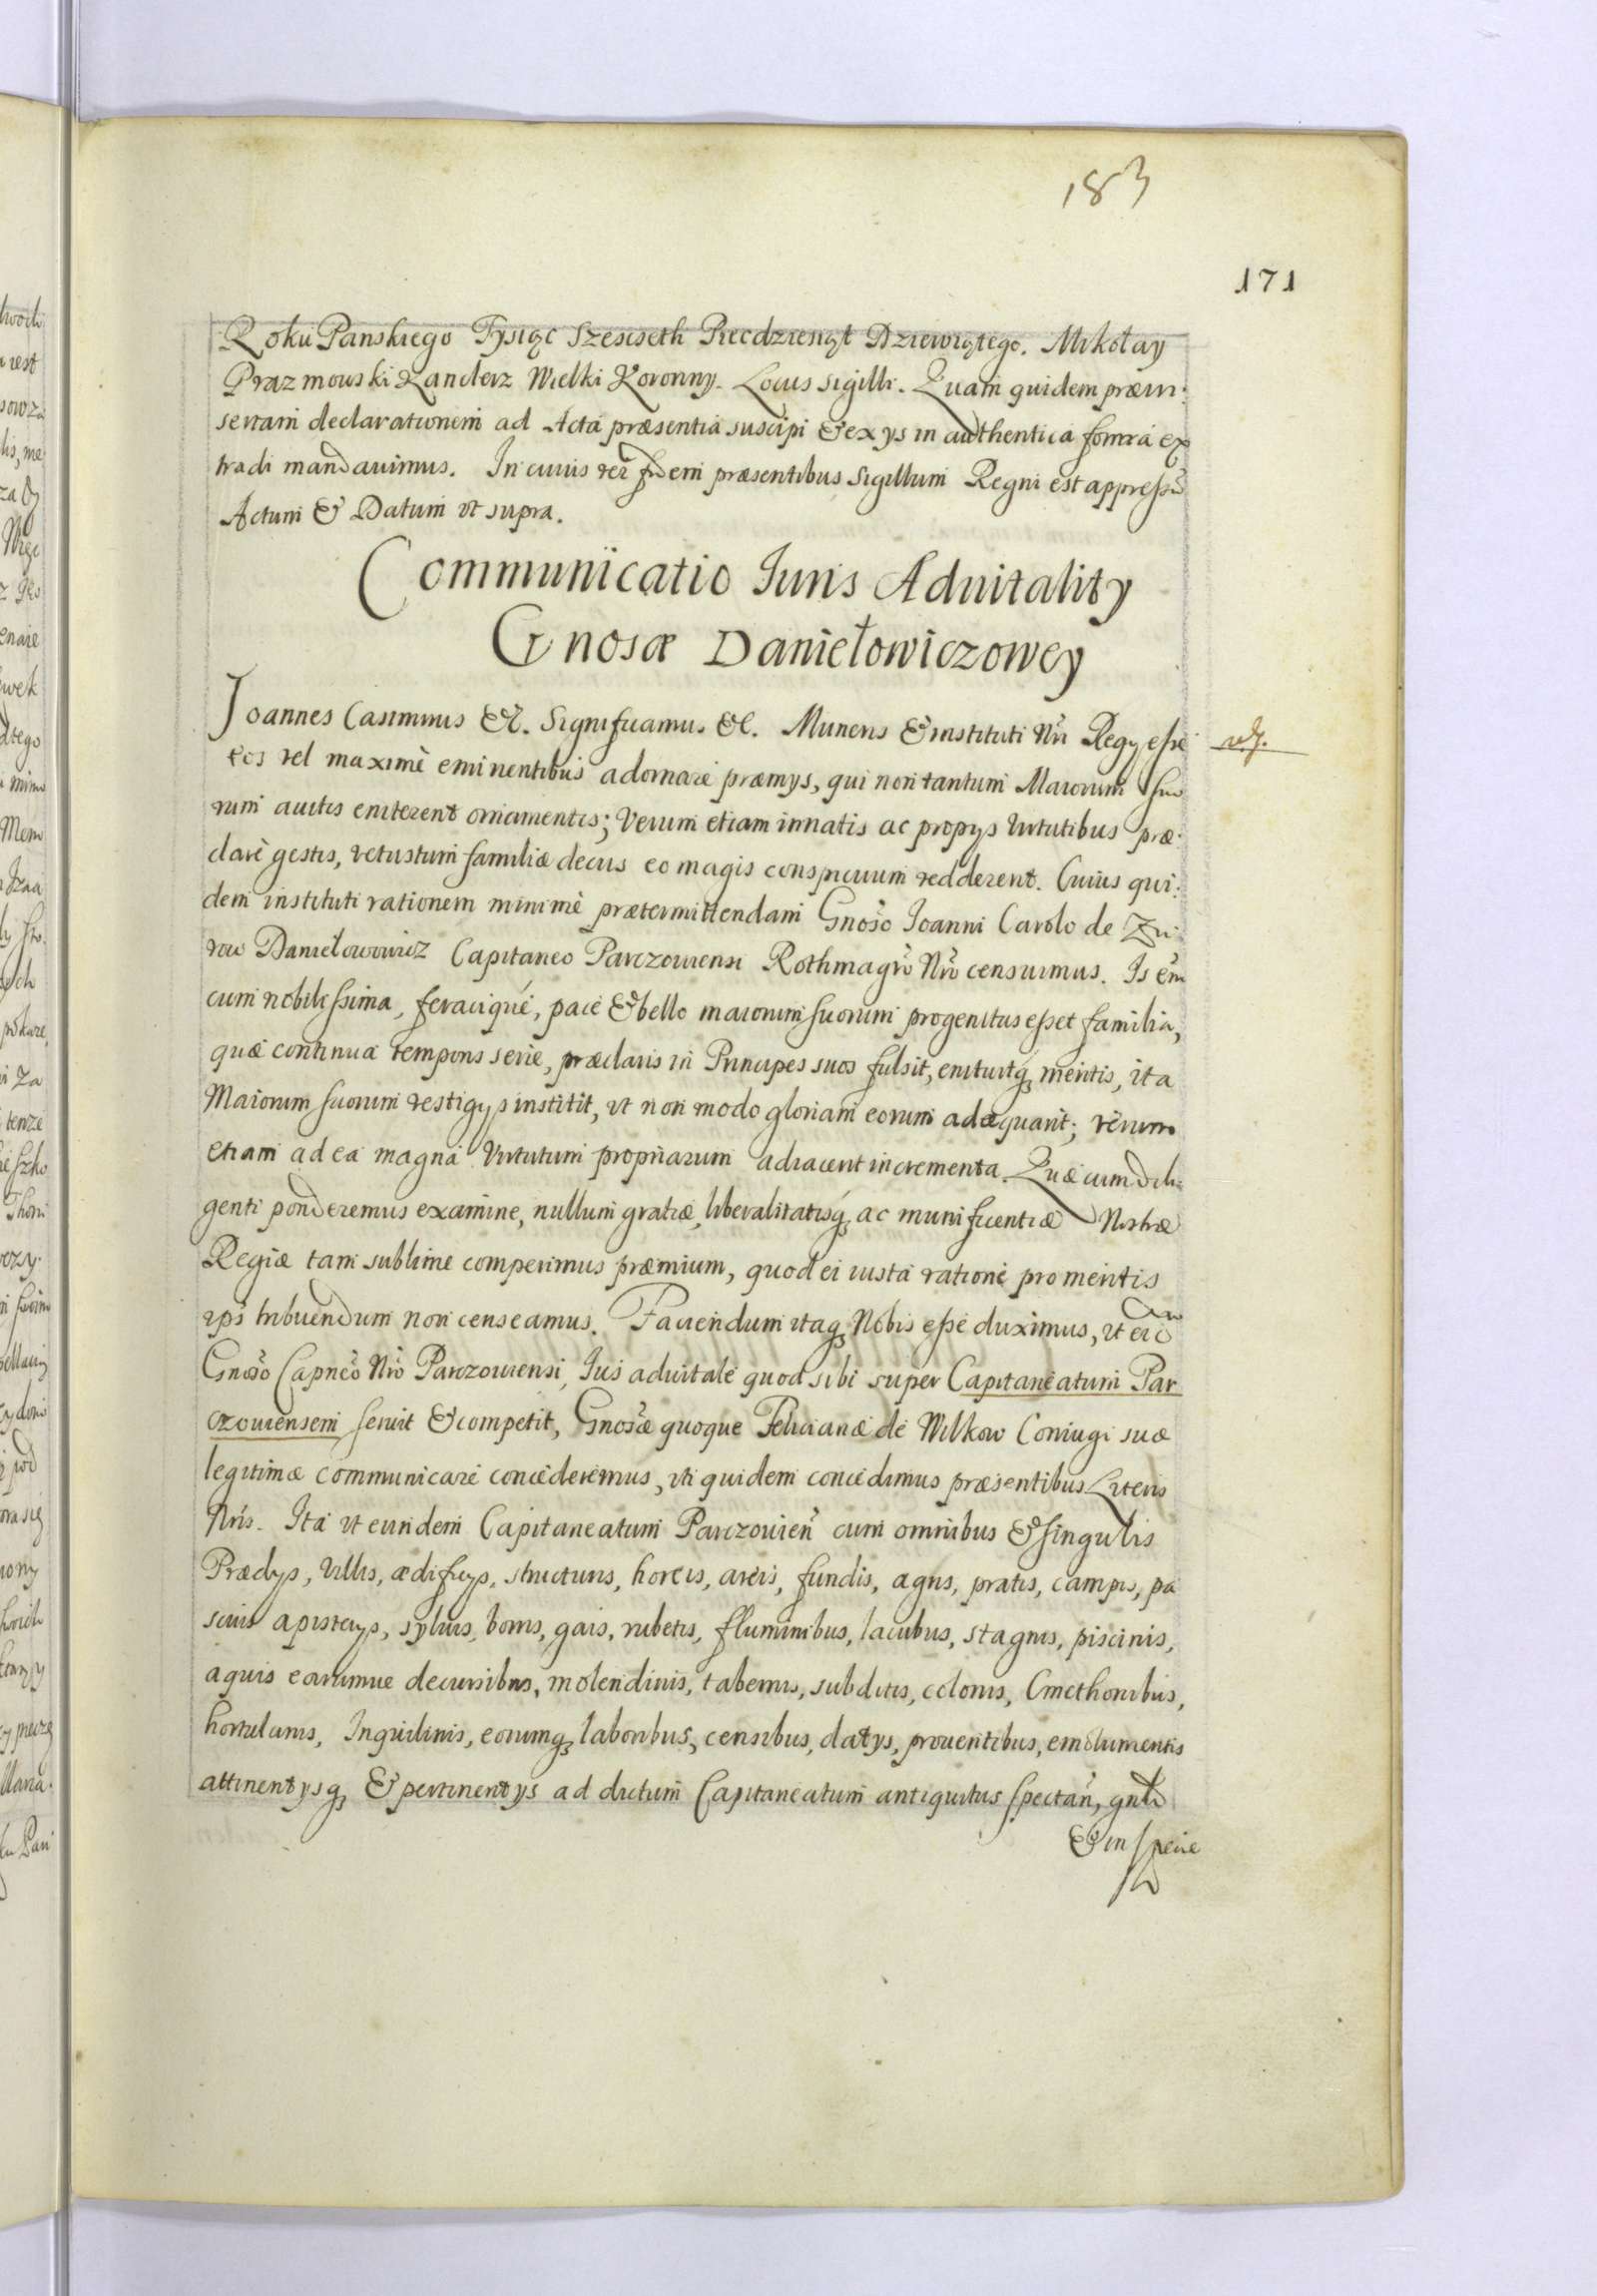 183
171
Roku Panskiego Tysiąc Szescseth Piecdziesiąt Dziewiątego. Mikołay
Prazmowski Kanclerz Wielki Koronny. Locus sigilli. Quam quidem præin:
sertam declarationem ad Acta præsentia suscipi & ex ys in authentica forma ex
tradi mandauimus. In cuius rei fidem præsentibus Sigillum Regni est appressũ
Actum & Datum vt supra.
Communicatio Iuris Aduitalitĳ
Gnosæ Daniełowiczowey
Joannes Casimirus &c. Significamus &c. Muneris & instituti Nri Regy esse
eos vel maximè eminentibus adornare præmys, qui non tantum Maiorum suo
rum auitis eniterent ornamentis; Verum etiam innatis ac propys Virtutibus præ:
clarè gestis, vetustum familiæ decus eo magis conspicuum redderent. Cuius qui:
dem instituti rationem minimè prætermittendam Gnoso Joanni Carolo de Zu:
row Daniełowowicz Capitaneo Parczouiensi Rothmagro Nro censuimus. Is em
cum nobilissima, feracique, pace & bello maiorum suorum progenitus esset familia,
quæ continua temporis serie, præclaris in Principes suos fulsit, enituitq meritis, ita
Maiorum suorum vestigys institit, vt non modo gloriam eorum adæquarit; verum
etiam ad ea magna Virtutum propriarum adiacerit incrementa. Quæ cum dili:
genti ponderemus examine, nullum gratiæ, liberalitatisq ac munificentiæ Nostræ
Regiæ tam sublime comperimus præmium, quod ei iusta ratione pro meritis
ips tribuendum non censeamus. Faciendum itaq Nobis esse duximus, vt ei
Gnoso Capneo Nro Parczouiensi, Jus aduitale quod sibi super Capitaneatum Par
czouiensem seruit & competit, Gnosæ quoque Felicianæ de Wilkow Coniugi suæ
legitimæ communicare concederemus, vti quidem concedimus præsentibus Literis
Nris. Ita vt eundem Capitaneatum Parczouien cum omnibus & singulis
Prædys, Villis, ædificys, structuris, horeis, areis, fundis, agris, pratis, campis, pa
scuis apisterys, syluis, boris, gais, rubetis, fluminibus, lacubus, stagnis, piscinis,
aquis earumue decursibus, molendinis, tabernis, subditis, colonis, Cmethonibus,
hortulanis, Inquilinis, eorumq laboribus, censibus, datys, prouentibus, emolumentis
attinentysq & pertinentys ad dictum Capitaneatum antiquitus spectan, gnli
& in specie